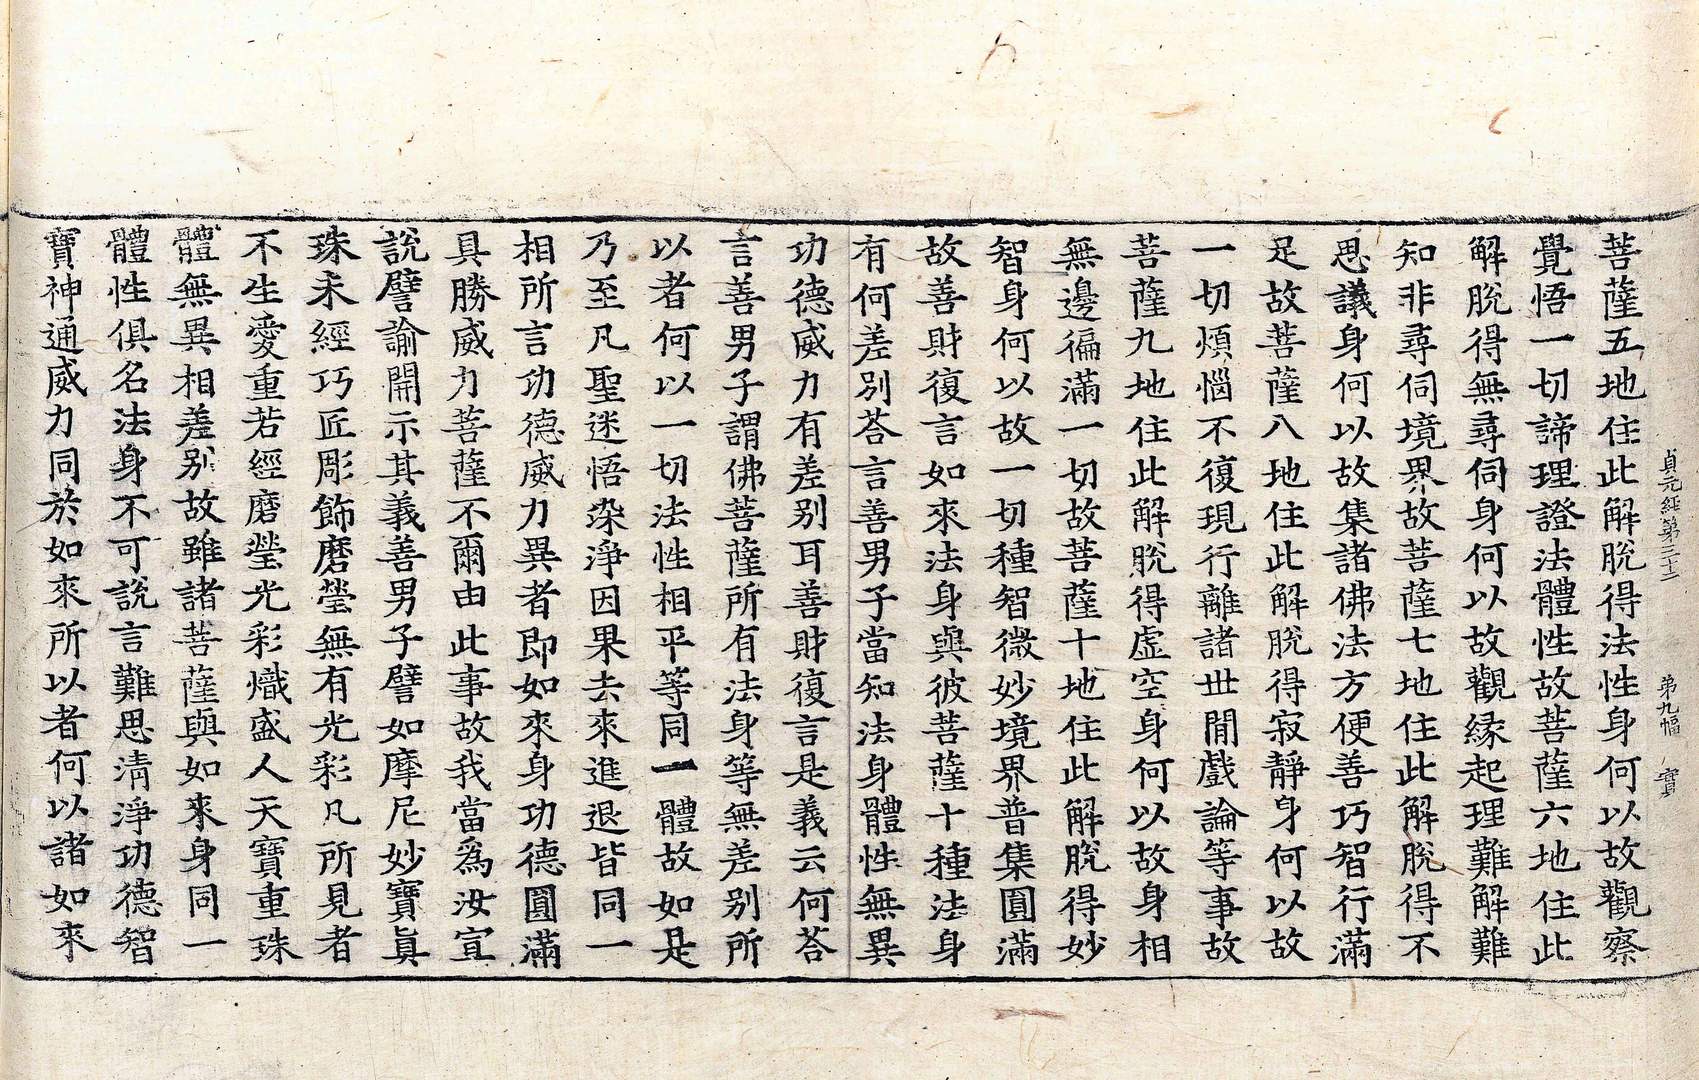 貞元經第三十二　第九幅　寶
菩薩五地住此解脫得法性身何以故觀察
覺悟一切諦理證法體性故菩薩六地住此
解脫得無尋伺身何以故觀緣起理難解難
知非尋伺境界故菩薩七地住此解脫得不
思議身何以故集諸佛法方便善巧智行滿
足故菩薩八地住此解脫得寂靜身何以故
一切煩惱不復現行離諸世閒戲論等事故
菩薩九地住此解脫得虛空身何以故身相
無邊徧滿一切故菩薩十地住此解脫得妙
智身何以故一切種智微妙境界普集圓滿
故善財復言如來法身與彼菩薩十種法身
有何差別荅言善男子當知法身體性無異
功德威力有差別耳善財復言是義云何荅
言善男子謂佛菩薩所有法身等無差別所
以者何以一切法性相平等同一體故如是
乃至凡聖迷悟染淨因果去來進退皆同一
相所言功德威力異者即如來身功德圓滿
具勝威力菩薩不爾由此事故我當爲汝宣
說譬諭開示其義善男子譬如摩尼妙寶眞
珠未經巧匠彫飾磨瑩無有光彩凡所見者
不生愛重若經磨瑩光彩熾盛人天寶重珠
體無異相差別故雖諸菩薩與如來身同一
體性俱名法身不可說言難思淸淨功德智
寶神通威力同於如來所以者何以諸如來